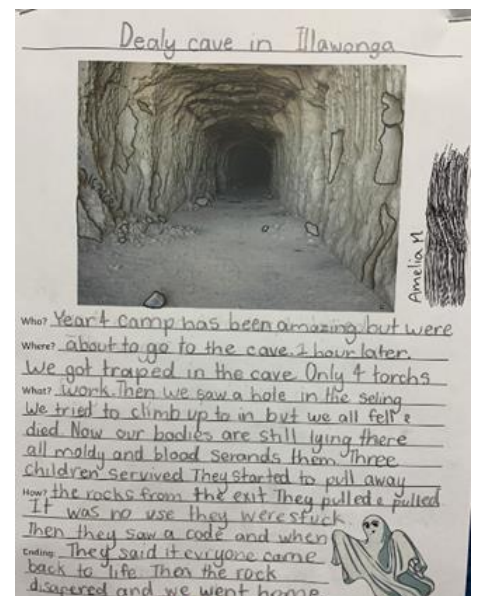 Dealy cave in Illawonga
Amelia M
Who? Year 4 camp has been amazing but were
Where? about to go to the cave. 1 hour later.
We got traped in the cave Only 4 torchs
What? work. Then we saw a hole in the seling
We tried to climb up to in but we all fell &
died Now our bodies are still lying there
all moldy and blood serands them Three
children servived They started to pull away
How? the rocks from the exit They pulled & pulled
It was no use they were stuck.
Then they saw a code and when
Ending: They said it evryone came
back to life. Then the rock
disapered and we went home